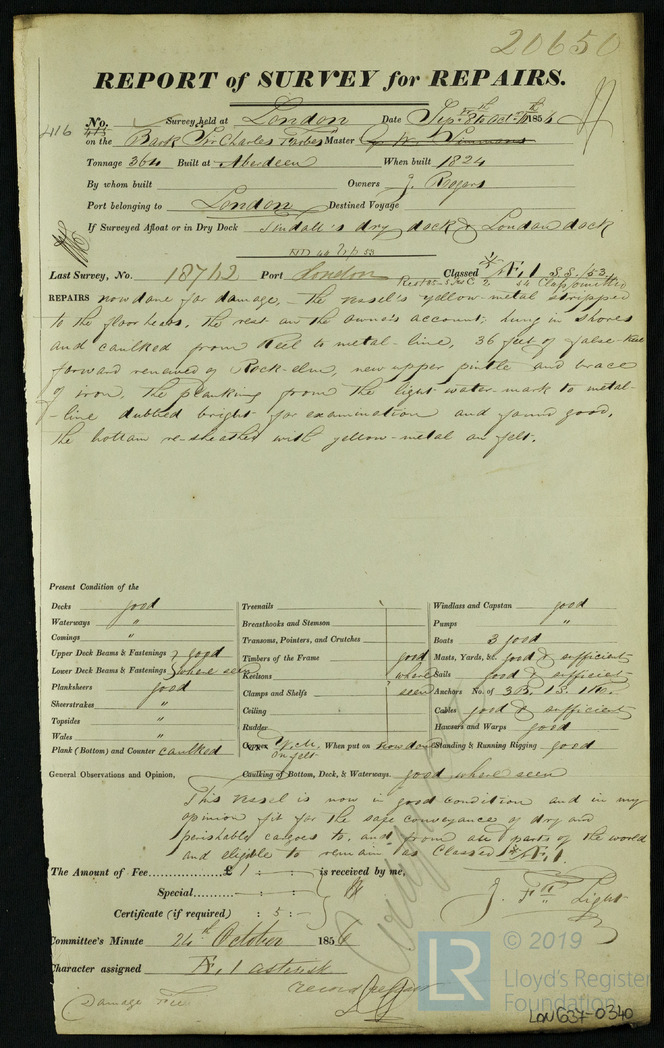 20650
REPORT of SURVEY for REPAIRS.
416
No. 415 Survey held at London Date Sep. 8th Oct. 1856
on the Bark Sir Charles Forbes Master
Tonnage 364 Built at Aberdeen When built 1824
By whom built Owners J. Rogers
Port belonging to London Destined Voyage
If Surveyed Afloat or in Dry Dock Tindall's dry dock & London dock
Last Survey, No. 18742 Port London Classed Æ 1 SS./53.
REPAIRS now done for damage, the vessel's yellow-metal stripped
to the floor heads, the rest on the owner's account; hung in shores
and caulked from Keel to metal-line, 36 feet of false Keel
forward renewed of Rock-elm, new upper pintle and brace
of iron. The planking from the light-water-mark to metal-
-line dubbed bright for examination and found good.
The bottom re-sheathed with yellow-metal on felt.
Present Condition of the
Decks good
Waterways "
Comings "
Upper Deck Beams & Fastenings } good
Lower Deck Beams & Fastenings } where seen
Planksheers good
Sheerstrakes "
Topsides "
Wales "
Plank (Bottom) and Counter caulked
Treenails
Breasthooks and Stemson
Transoms, Pointers, and Crutches
Timbers of the Frame good
Keelsons where
Clamps and Shelfs seen
Ceiling
Rudder
Copper Y.M. on felt When put on now done
Caulking of Bottom, Deck, & Waterways good where seen
Windlass and Capstan good
Pumps "
Boats 3 good
Masts, Yards, &c. good & sufficient
Sails good & sufficient
Anchors No. of 3 B. 1 S. 1 K.
Cables good & sufficient
Hausers and Warps good
Standing & Running Rigging good
General Observations and Opinion,
This vessel is now in good condition and in my
opinion fit for the safe conveyance of dry and
perishable cargoes to, and from all parts of the world
and eligible to remain as Classed Æ 1.
The Amount of Fee.....£ 1 : - : - is received by me,
Special......... - : - : -
Certificate (if required) : 5 : - J. F. Light
Committee's Minute 24th October 1856
Character assigned Æ 1 asterisk
Damage Fee
LR © 2019
Lloyd's Register
Foundation
LON637-0340